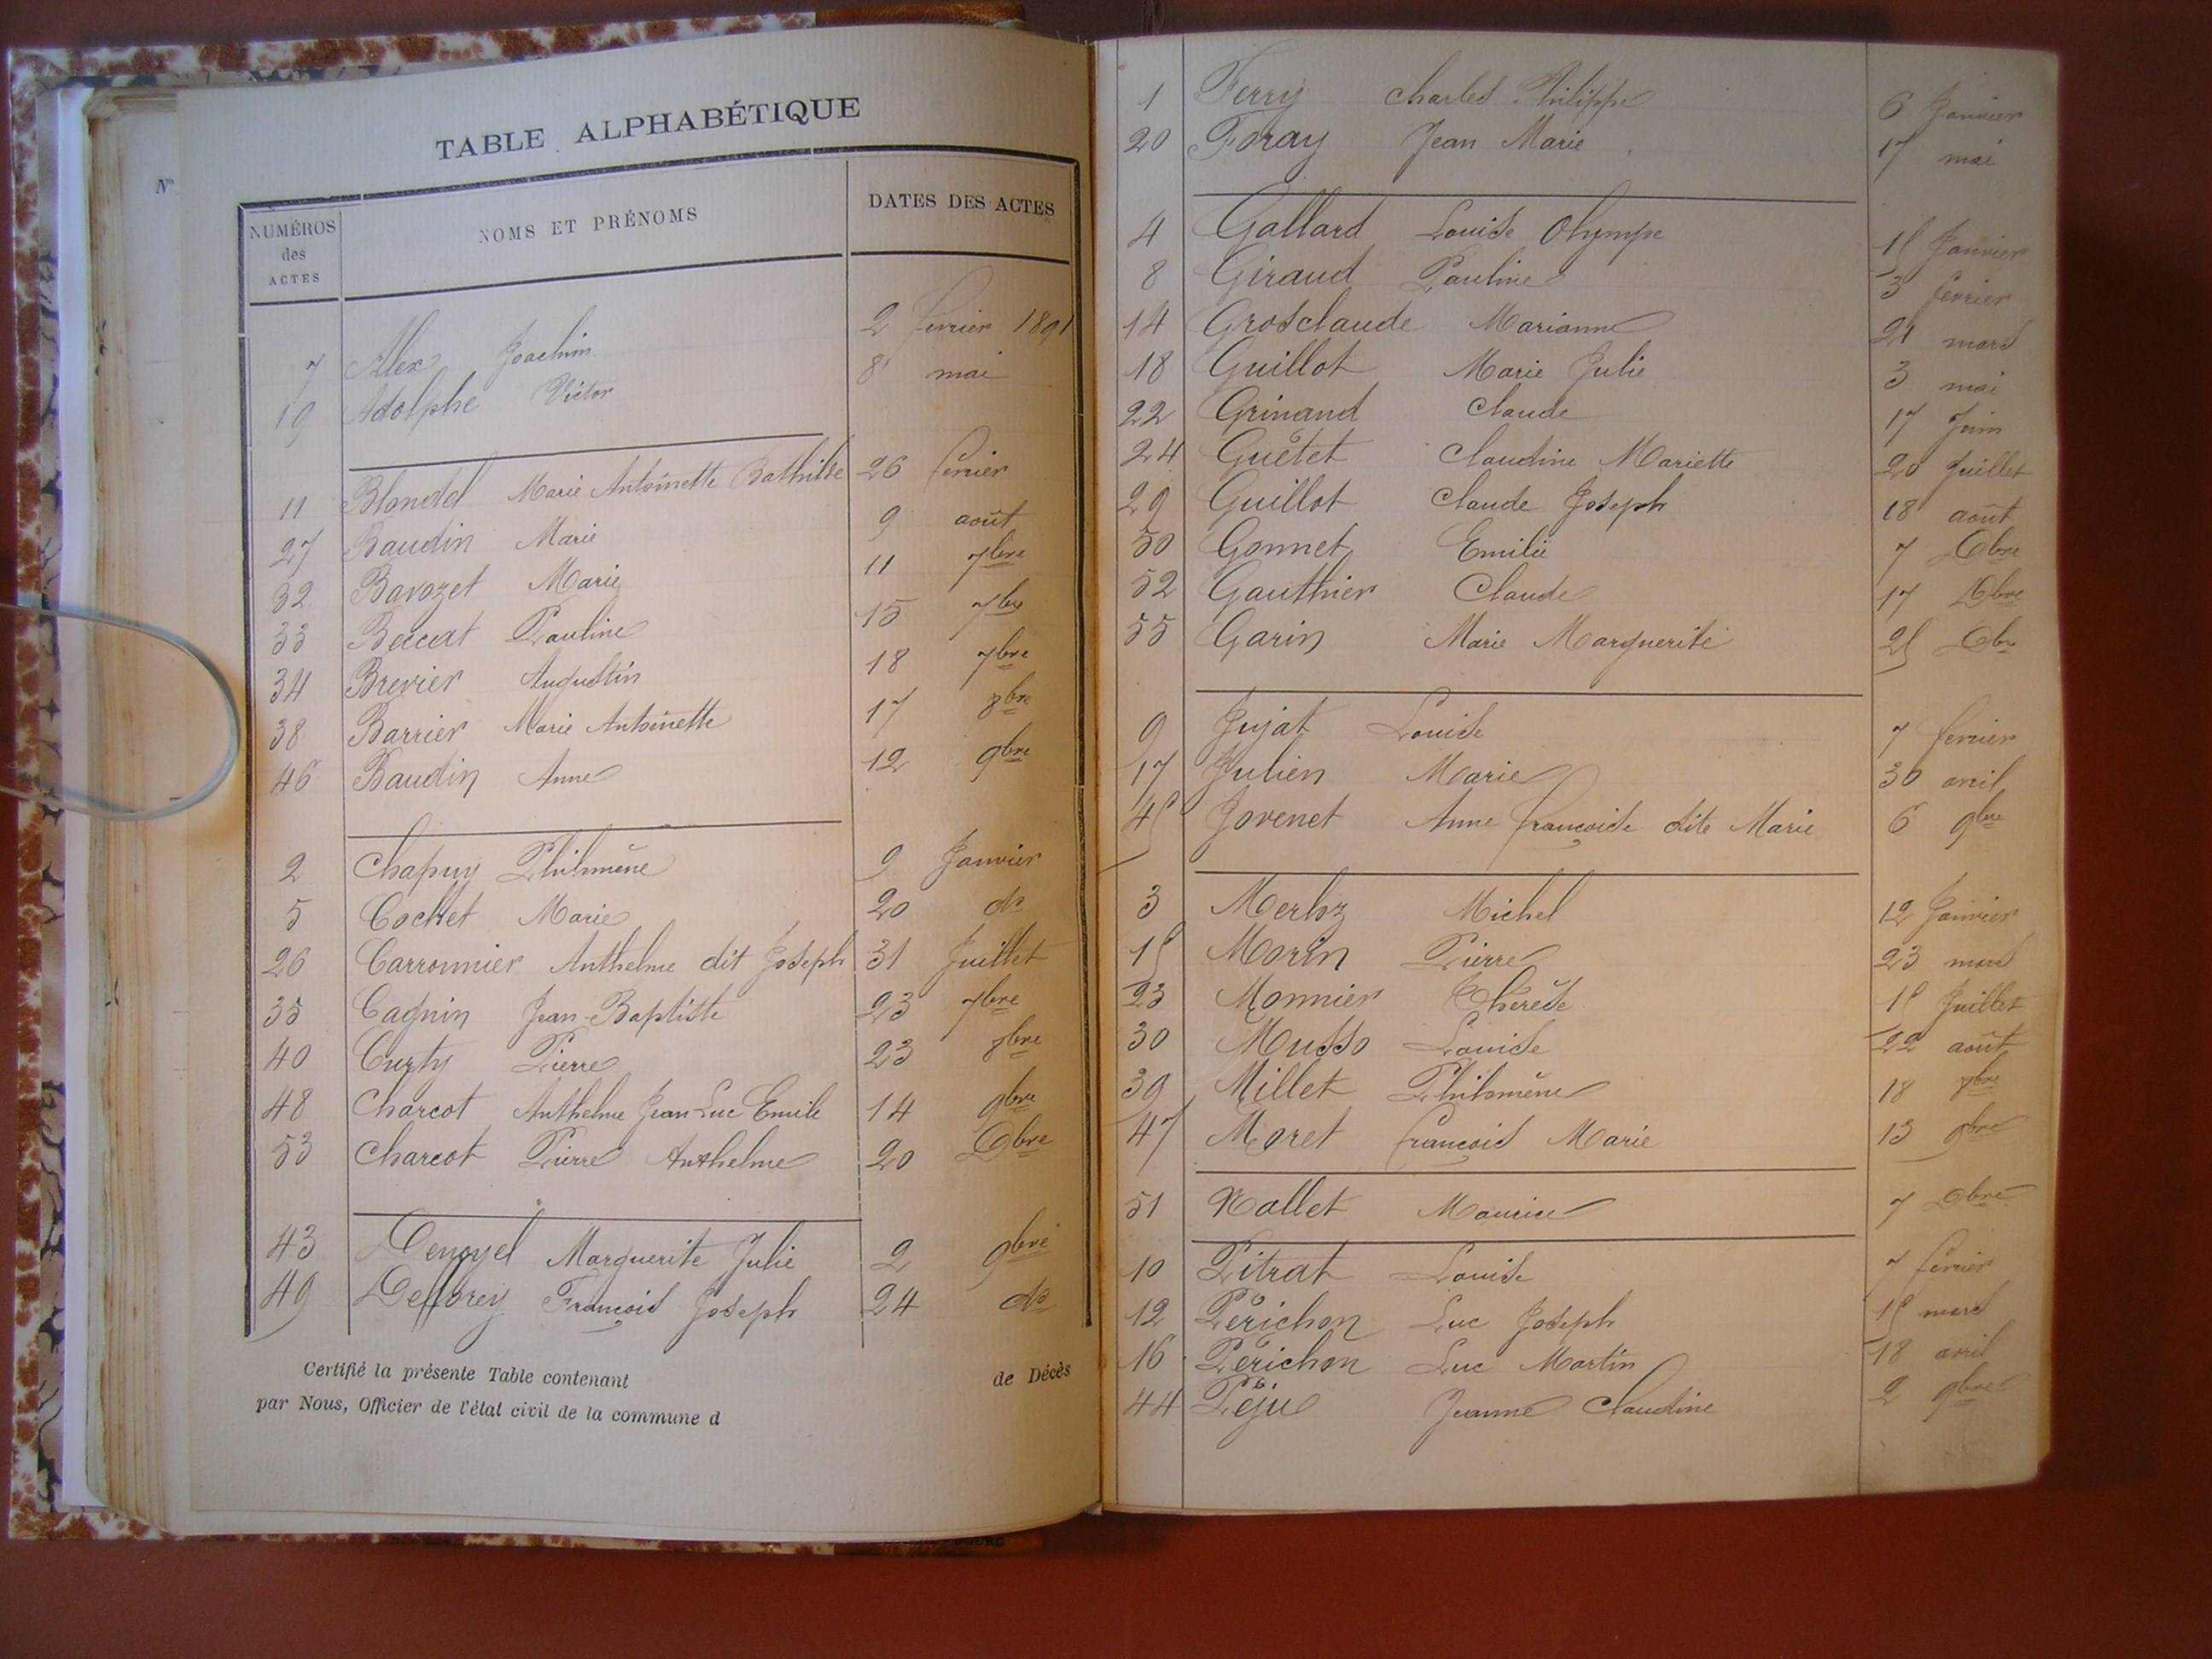 TABLE ALPHABÉTIQUE
N°
NUMÉROS des ACTES
NOMS ET PRÉNOMS
DATES DES ACTES
7 Alex Joachim 2 février 1891
19 Adolphe Victor 8 mai
11 Blondel Marie Antoinette Bathilde 26 février
27 Baudin Marie 9 août
32 Bavozet Marie 11 7bre
33 Pauline 15 7bre
34 Brevier Augustin 18 7bre
38 Barrier Marie Antoinette 17 8bre
46 Baudin Anne 12 9bre
2 Chapuy Philomène 9 Janvier
5 Cochet Marie 20 do
26 Carronnier Anthelme dit Joseph 31 Juillet
35 Cagnin Jean-Baptiste 23 7bre
40 Curty Pierre 23 8bre
48 Charcot Anthelme Jean Luc Emile 14 9bre
53 Charcot Pierre Anthelme 20 Dbre
43 Marguerite Julie 2 9bre
49 François Joseph 24 do
Certifié la présente Table contenant de Décès
par Nous, Officier de l'état civil de la commune d
1 Ferry Charles Philippe 6 Janvier
20 Foray Jean Marie 17 mai
4 Gallard Louise Olympe 15 Janvier
8 Giraud Pauline 3 février
14 Grosclaude Marianne 21 mars
18 Guillot Marie Julie 3 mai
22 Grinand Claude 17 Juin
24 Guétet Claudine Mariette 20 Juillet
29 Guillot Claude Joseph 18 août
50 Gonnet Emilie 7 Dbre
52 Gauthier Claude 17 Dbre
55 Garin Marie Marguerite 25 Dbre
9 Jujat Louise 7 février
17 Julien Marie 30 avril
45 Jovenet Anne françoise dite Marie 6 9bre
3 Michel 12 Janvier
15 Morin Pierre 23 mars
23 Monnier Thérèse 15 Juillet
30 Musso Louise 22 août
39 Millet Philomène 18 8bre
47 Moret françois Marie 13 9bre
51 Nallet Maurice 7 Dbre
10 Pitrat Louise 7 février
12 Périchon Luc Joseph 15 mars
16 Périchon Luc Martin 18 avril
44 Péju Jeanne Claudine 2 9bre